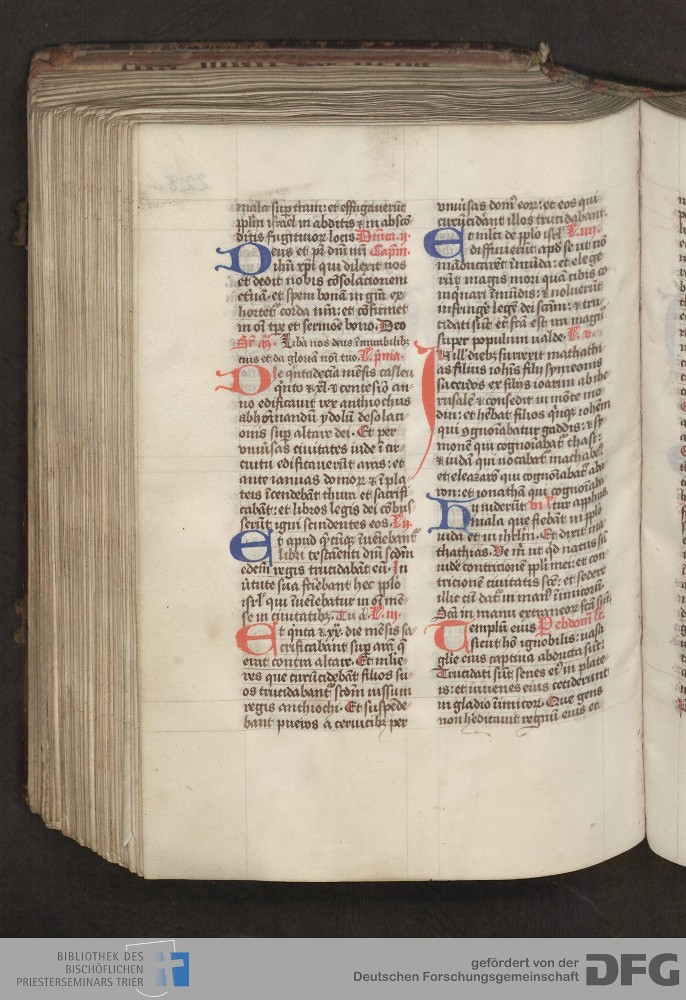 mala sup terram: et effugauerūt
pplm isrl in abditis ⁊ in absco
ditis fugitiuor locis Dnica ij.
Deus et pr dnī nrī Capīm.
ihū xpī qui dilexit nos
et dedit nobis cōsolacionem
et̄nā. et spem bonā in grā ex
hortet corda nrā: et cōfirmet
in oī ope et sermōe bono. Deo
Liba nos deus ī mirabilibꝫ
tuis et da gloriā noī tuo. L. pma.
Die qͥntadecīa mēsis casleu
qͥnto ⁊ xl ⁊ centesīo an
no edificauit rex anthiochus
abhoīnandū ydolū desolati
onis sup altare dei. Et per
vniūsas ciuitates iude ī cir
cuitu edificauerūt aras: et
ante ianuas domoꝝ ⁊ ī pla
teis īcendebāt thura et sacrifi
cabāt: et libros legis dei cōbus
serūt igni scindentes eos. L. ij.
Et apud qͥcūqꝫ īueniebant
libri testamēti dnī scdm
edcm regis trucidabāt eū. In
ūtute sua faciebant hec pplo
isrl qui īueniebatur in oī mē
se in ciuitatibꝫ. Tu a. L. iij.
Et qͥnta ⁊ xx. die mēsis sa
crificabant sup aram q
erat contra altare. Et mulie
res que circūcidebāt filios su
os trucidabant scdm iussum
regis anthiochi. Et suspēde
bant pueros a ceruicibꝫ per
vniūsas domos eoꝝ: et eos qui
circūcidant illos trucidabant.
Et mlti de pplo isrl L. iiij.
diffinierūt apd se ut nō
māducarēt īmūda: et elege
rūt magis mori quā cibis co
inqͥnari īmūdis: ⁊ noluerūt
infringe legē dei scām: ⁊ tru
cidati sūt et fcā est ira magna
super populum ualde. L. v.
In ill diebꝫ surrexit mathathi
as filius iohīs filii symeonis
sacerdos ex filiis ioarim ab ihe
rusalē ⁊ consedit in mōte mo
din: et hēbat filios qͥnqꝫ iohēm
qui cognoīabatur gaddis: ⁊ sy
monē qui cognoīabat thasi:
⁊ iudā qui uocabat machabeꝰ
et eleazarū qui cognoīabat aba
ron: et ionathā qui cognoīabat
Hii uiderūt vi. l. tur apphus.
mala que fiebāt in pplo
iuda et in ihrlm. Et dixit ma
thathias. Ve m ut qd natus sū
uide contricionē ppli mei: et con
tricionē ciuitatis scē: et sedere
illic cū dat in manꝰ inimicoꝝ.
Scā in manu extraneoꝝ fcā sūt.
Templū eius Pebdomē L.
sicut hō ignobilis: uasa
glīe eius captiua abducta sūt:
Trucidati sūt senes eī in plate
is: et iuuenes eius ceciderunt
in gladio īimicoꝝ. Que gens
non heditauit regnū eius et
BIBLIOTHEK DES
BISCHÖFLICHEN
PRIESTERSEMINARS TRIER
gefördert von der
Deutschen Forschungsgemeinschaft
DFG